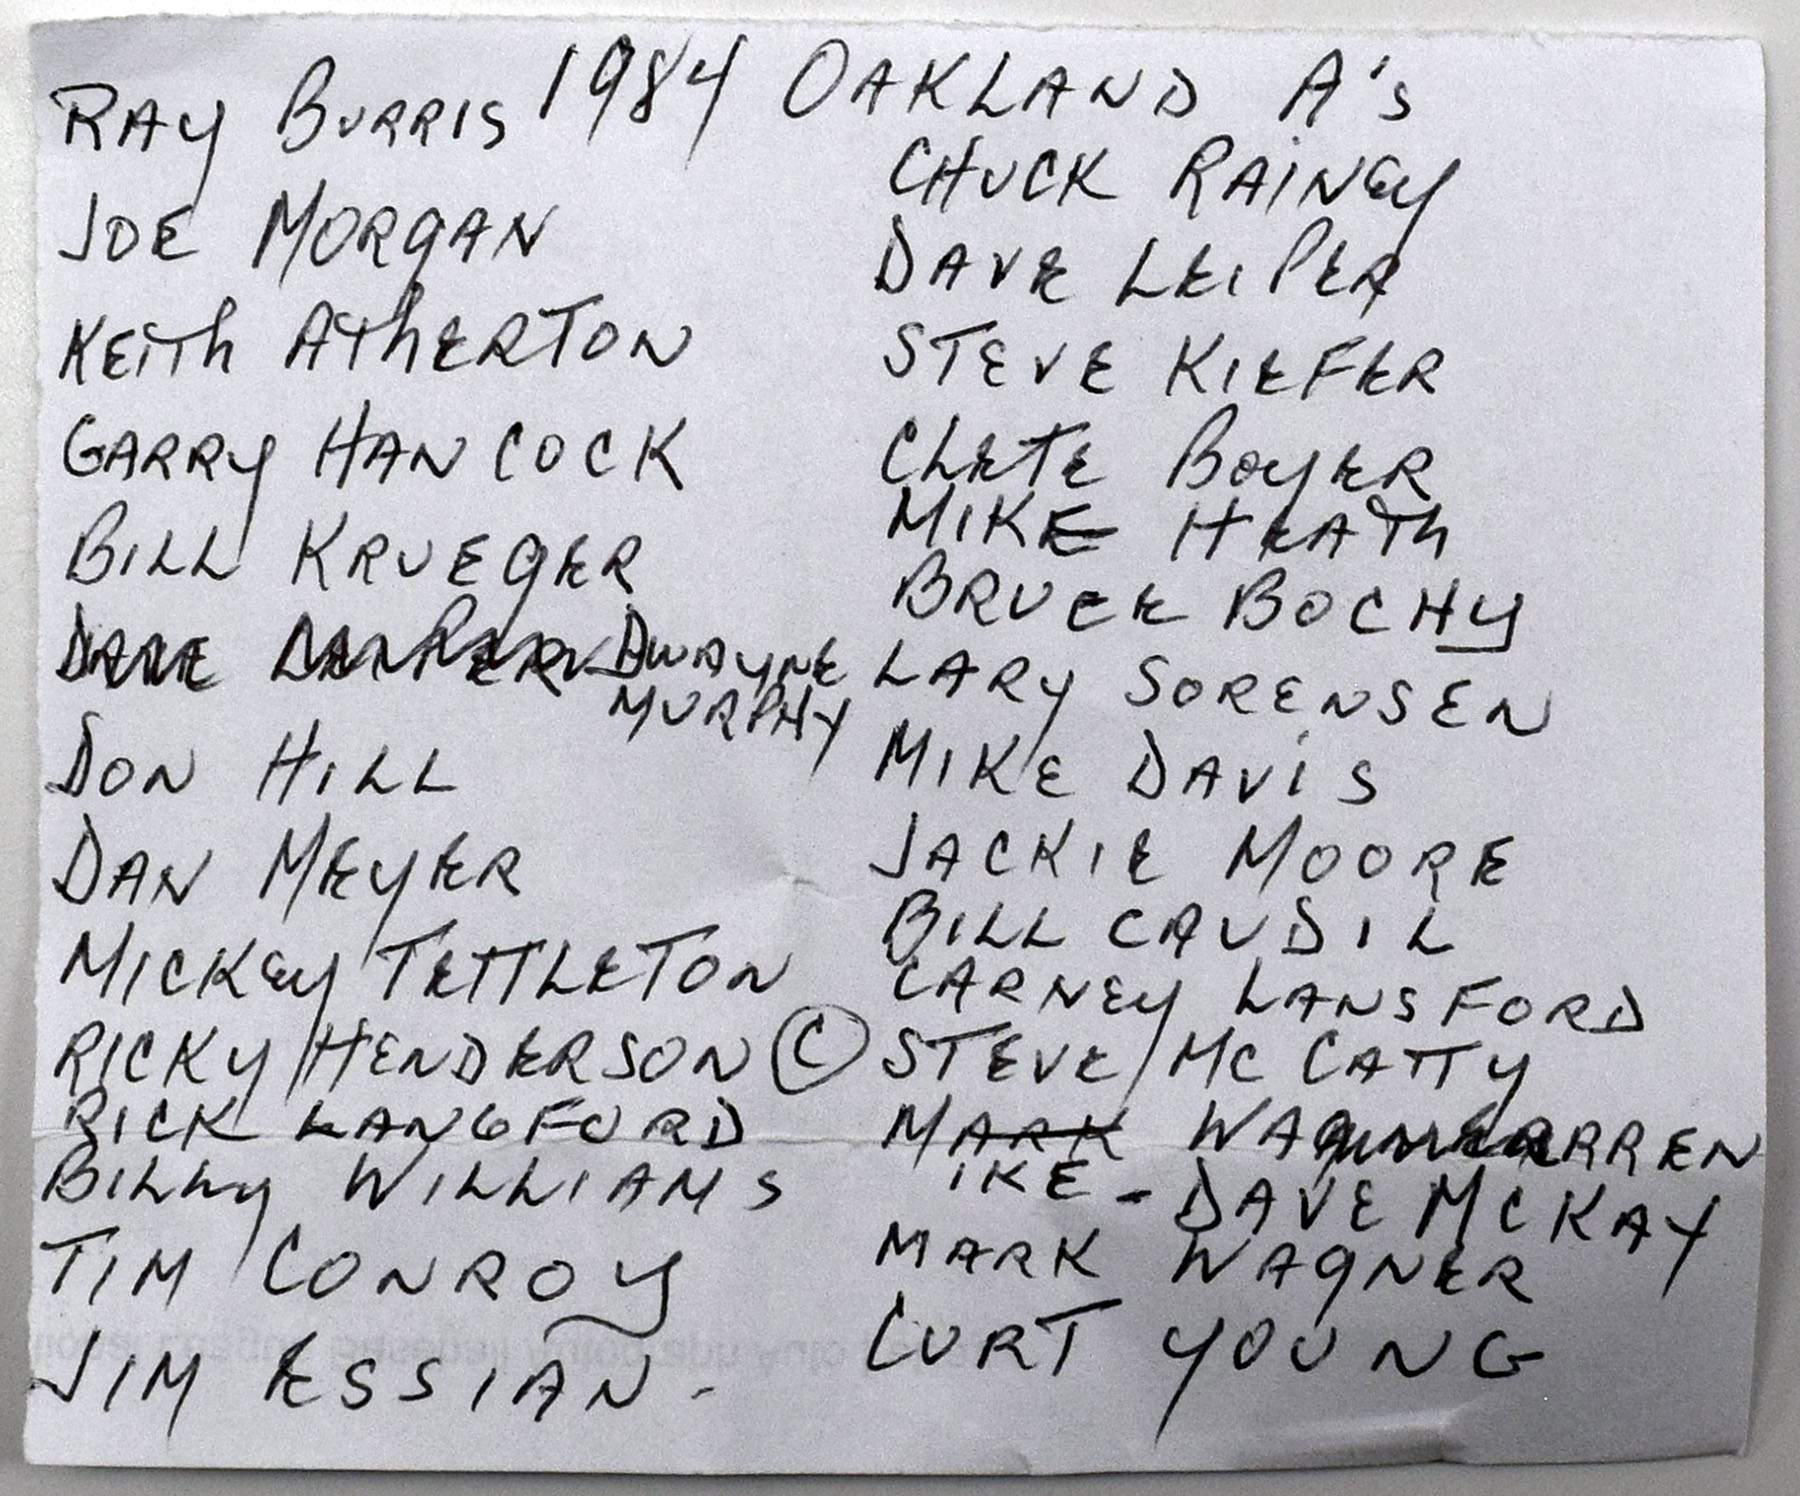 1984 OAKLAND A's
RAY BURRIS
JOE MORGAN
KEITh AThERTON
GARRY HANCOCK
BILL KRUEGER
DWAYNE
MURPHY
DON HILL
DAN MEYER
MICKEY TETTLETON
RICKY HENDERSON ©
RICK LANGFORD
BILLY WILLIAMS
TIM CONROY
JIM ESSIAN -
CHUCK RAINEY
DAVE LEIPER
STEVE KIEFER
CLETE BOYER
MIKE HEATh
BRUCE BOCHY
LARY SORENSEN
MIKE DAVIS
JACKIE MOORE
BILL CAUDIL
CARNEY LANSFORD
STEVE MC CATTY
MARK WAGNER RREN
IKE - DAVE MCKAY
MARK WAGNER
CURT YOUNG